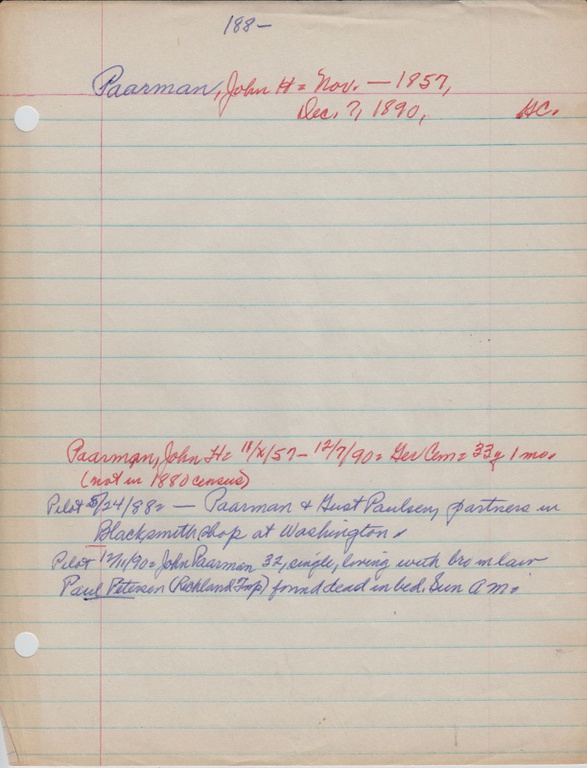 188-
Paarman, John H = Nov. — 1857,
Dec. 7, 1890, HC.
Paarman, John H = 11/x/57 - 12/7/90 = Ger Cem = 33y 1 mo.
(not in 1880 census)
Pilot 5/24/88 = — Paarman & Gust Paulsen, partners in
Blacksmith shop at Washington.
Pilot 12/11/90 = John Paarman 32, single, living with bro in law
Paul Peterson (Richland Twp) found dead in bed. Sun A M.